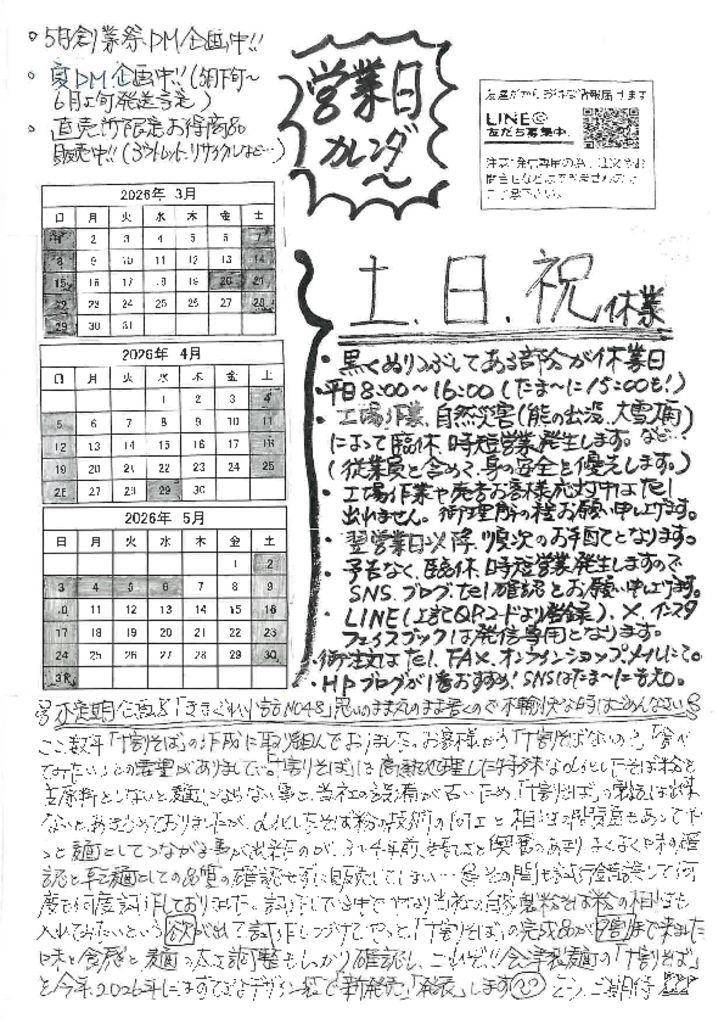 • 5月創業祭DM企画中!!
• 夏DM企画中!!(5月下旬～
6月上旬発送予定)
• 直売所限定お得商品
販売中!!(アウトレット・リサイクルなど…)
営業日
カレンダ
～
友達だからお得な情報届けます
LINE
友だち募集中。
2026年 3月
日 月 火 水 木 金 土
1 2 3 4 5 6 7
8 9 10 11 12 13 14
15 16 17 18 19 20 21
22 23 24 25 26 27 28
29 30 31
2026年 4月
日 月 火 水 木 金 土
1 2 3 4
5 6 7 8 9 10 11
12 13 14 15 16 17 18
19 20 21 22 23 24 25
26 27 28 29 30
2026年 5月
日 月 火 水 木 金 土
1 2
3 4 5 6 7 8 9
10 11 12 13 14 15 16
17 18 19 20 21 22 23
24 25 26 27 28 29 30
31
土、日、祝休業
• 黒くぬりつぶしてある部分が休業日
• 平日8:00～16:00(たま～に15:00も!)
• 工場作業、自然災害(熊の出没、大雪、雨)
によって臨休、時短営業発生します。など…
(従業員と含めて、身の安全を優先します。)
• 工場作業や売店お客様応対中はtel
出れません。御理解の程お願い申し上げます。
• 翌営業日以降、順次のお手配となります。
• 予告なく、臨休、時短営業発生しますので
SNS、ブログ、tel確認とお願い申し上げます。
• LINE(上記QRコードより登録)、X、インスタ
フェイスブックは発信専用となります。
• 御注文はtel、FAX、オンラインショップ、メールにて。
• HPブログが1番おすすめ! SNSはたま～に告知。
不定期企画「きまぐれ小話NO48」思いのまま気のまま書くので不愉快な時はごめんなさい
ここ数年「十割そば」の作成に取り組んでおりました。お客様から「十割そばないの?」「食べ
てみたい」との要望がありまして。「十割そば」は高熱処理した特殊なα化したそば粉を
主原料としないと麺にならない事と、当社の設備が古いため、「十割そば」の製法は出来
ないと、あきらめておりましたが、α化したそば粉の技術の向上と相性の問題もあってや
っと麺としてつながる事が出来たのが、3～4年前、喜びと興奮のあまり、よくよく味の確
認と乾麺としての品質の確認せずに販売してしまい…
何度も何度も試作しておりました。
入れてみたいという欲が出て試作しつづけてやっと、「十割そば」の完成品が出来ました
味と食感と麺の太さ調整もしっかり確認し、これぞ!!会津製麺の「十割そば」
と今年、2026年に
新発売「発表」します
ご期待